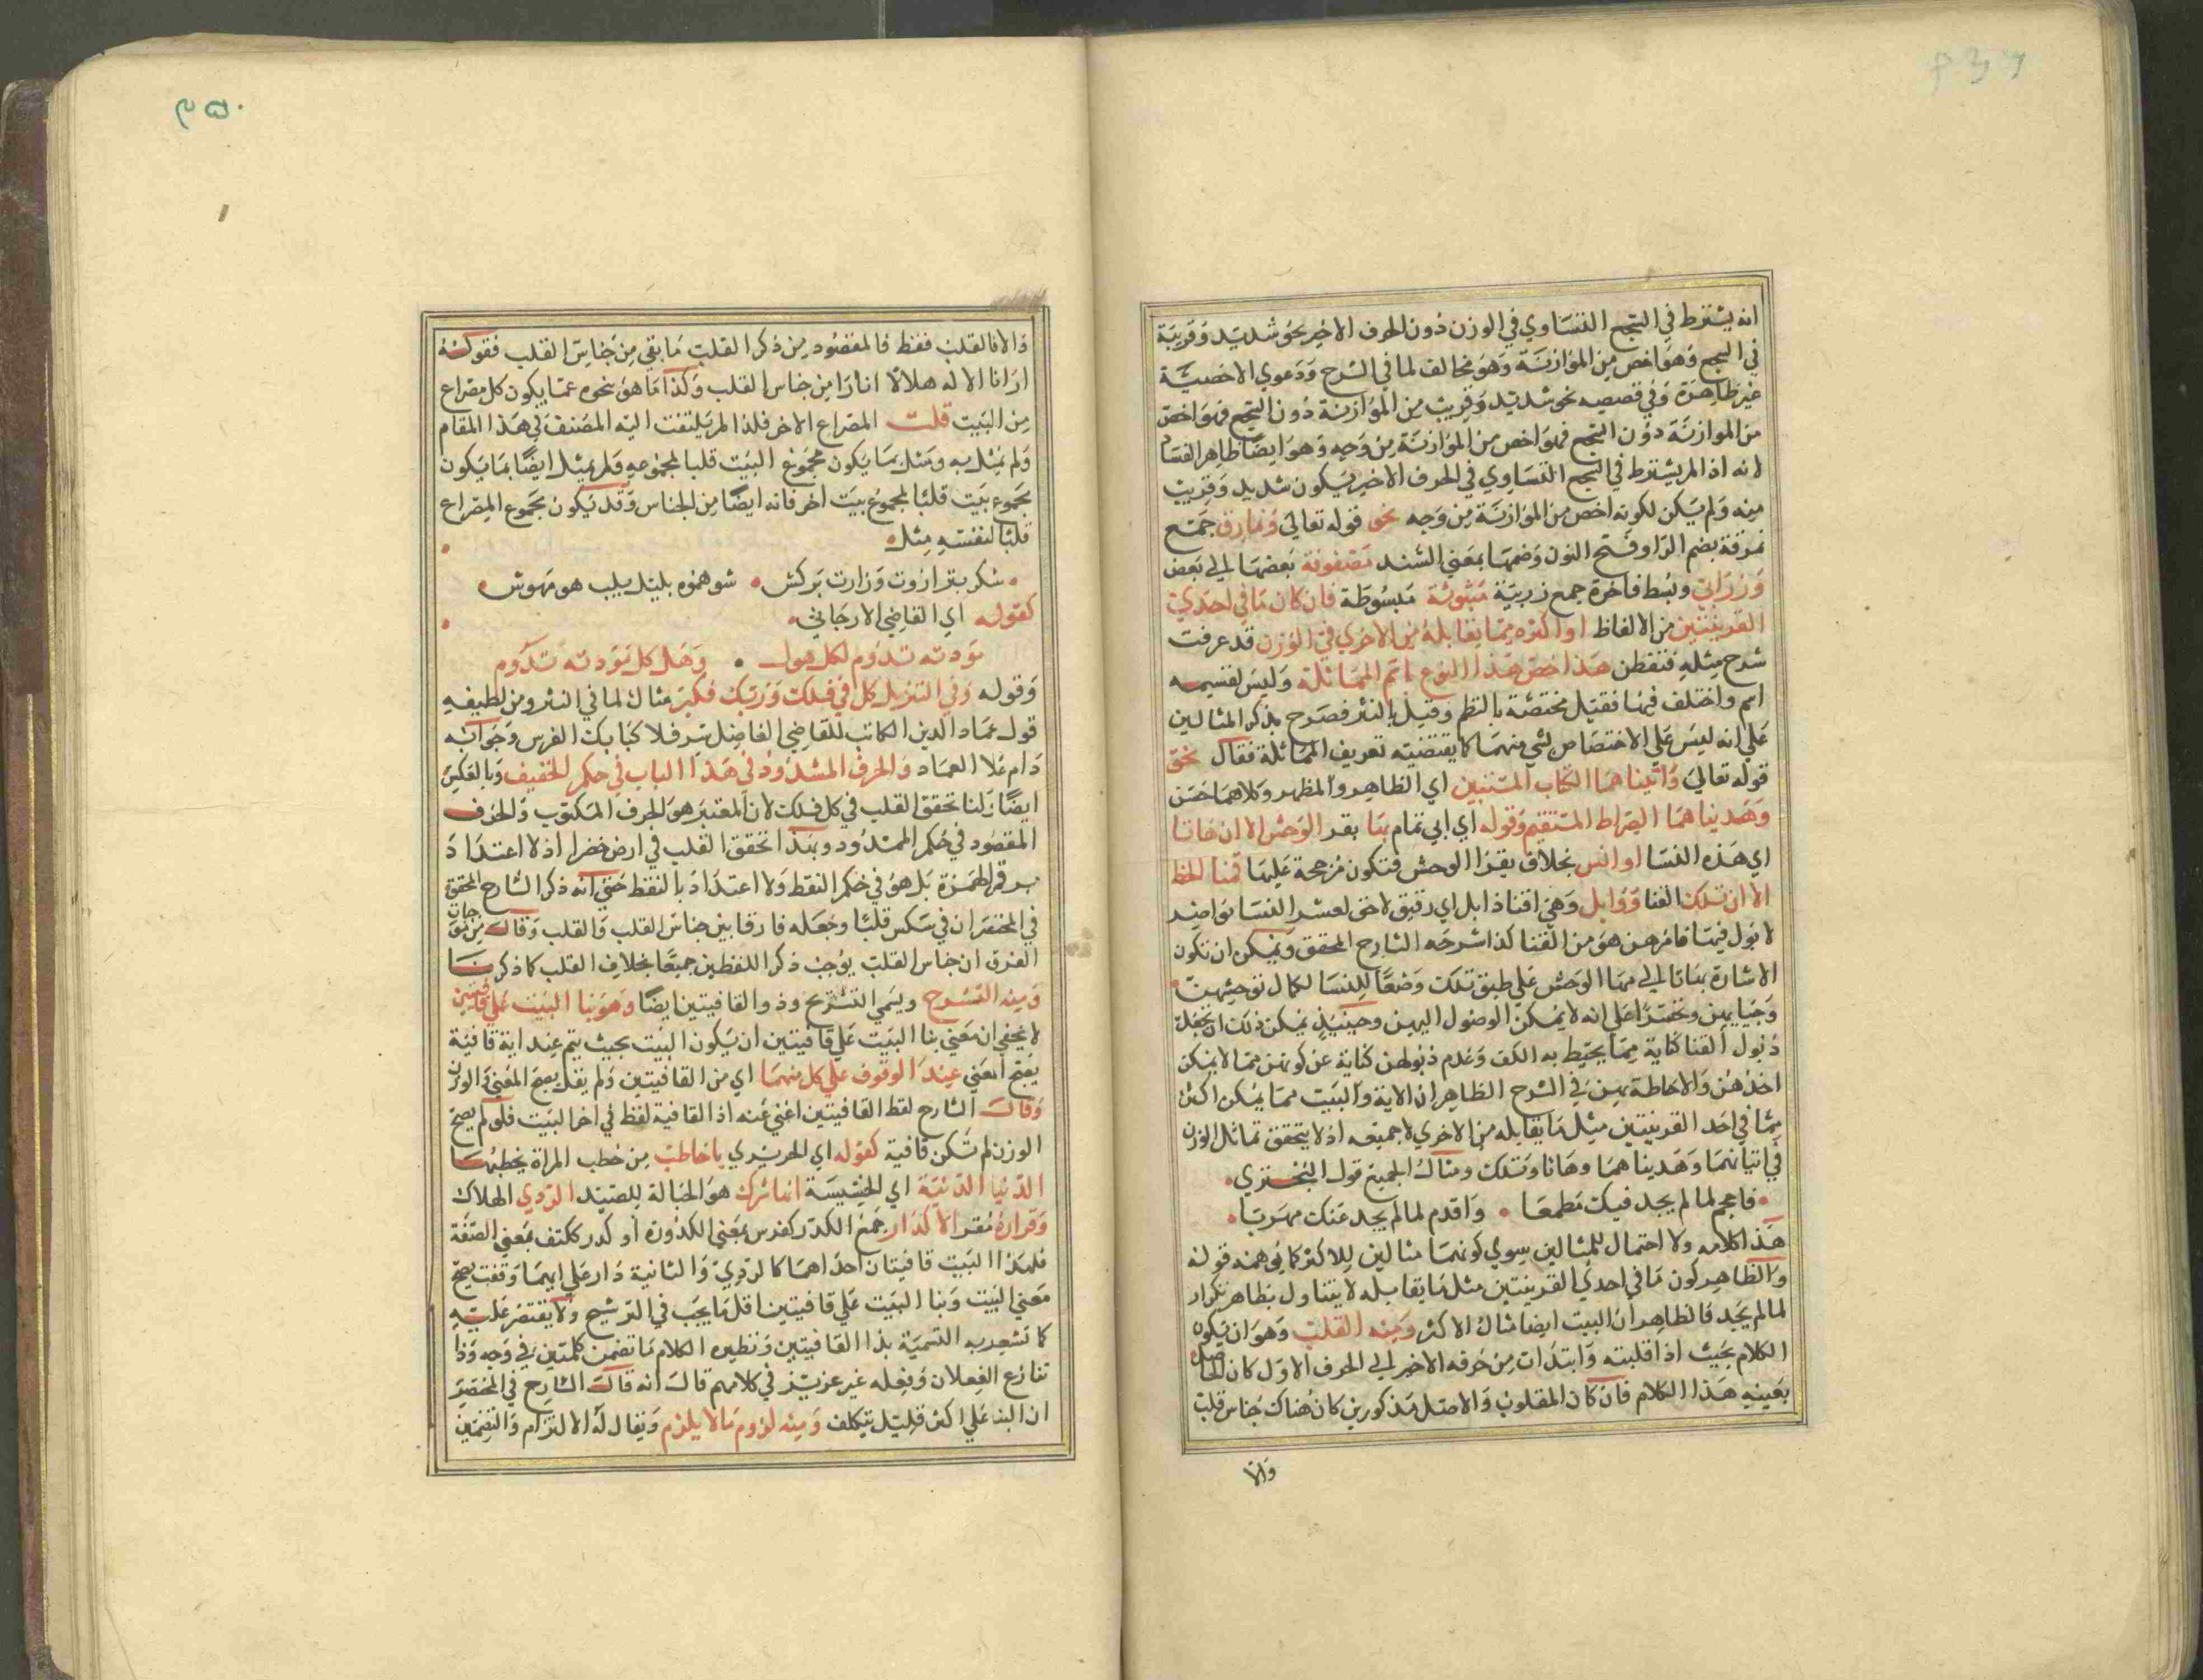 انه يشترط في السجع التساوي في الوزن دون الحرف الاخير نحو شديد وقريب
في السجع وهو اخص من الموازنة وهو مخالف لما في الشرح ودعوي الاخصية
غير ظاهرة وفي قصيه نحو شديد وقريب من الموازنة دون السجع فهو اخص
من الموازنة دون السجع فهو اخص من الموازنة من وجه وهو ايضا ظاهر الفساد
لانه اذا لم يشترط في السجع التساوي في الحرف الاخير يكون شديد وقريب
منه ولم يكن لكونه اخص من الموازنة من وجه نحو قوله تعالي ونمارق جمع
نمرقة بضم الرا وفتح النون وضمها بمعني السند مصفوفة بعضها الي بعض
وزرابي وبسط فاخرة جمع زربية مبثوثة مبسوطة فان كان ما في احدي
القرينتين من الالفاظ او اكثره مما يقابله من الاخري في الوزن قد عرفت
شرح مثله فتفطن هذا خص هذا النوع باسم المماثلة وليس لقسيمه
اسم واختلف فيها فقيل مختصة بالنظم وقيل بالنثر فصرح بذكر المثالين
علي انه ليس علي الاختصاص لشي منهما كما يقتضيه تعريف المماثلة فقال نحو
قوله تعالي واتيناهما الكتاب المستبين اي الظاهر والمظهر وكلاهما حسن
وهديناهما الصراط المستقيم وقوله اي ابي تمام مها بقر الوحش الا ان هاتا
اي هذه النسا اوانس بخلاف بقر الوحش فتكون مرجحة عليها قنا الخط
الا ان تلك القنا ذوابل وهي اقنا ذابل اي رقيق لاحق لعشر النسا نواضر
لا ذبول فيها فامرهن هو من القنا كذا شرحه الشارح المحقق ويمكن ان تكون
الاشارة بهاتا الي مها الوحش علي طبق تلك وضعا للنسا لكمال توحشهن
وحيايهن وتحسرا علي انه لا يمكن الوصول اليهن وحينئذ يمكن ذلك ان تجعل
ذبول القنا كناية مما يحيط به الكف وعدم ذبولهن كناية عن كونهن مما لا يمكن
اخذهن والاحاطة بهن في الشرح الظاهر ان الاية والبيت مما يمكن اكثر
مما في احد القرينتين مثل ما يقابله من الاخري لا جميعه اذ لا يتحقق تماثل الوزن
في اتيناهما وهديناهما وهاتا وتلك ومثال الجميع قول البحتري
فاحجم لما لم يجد فيك مطمعا واقدم لما لم يجد عنك مهربا
هذا كلامه ولا احتمال للمثالين سوي كونهما مثالين للاكثر كما يوهمه قوله
والظاهر كون ما في احدي القرينتين مثل ما يقابله لا يتناول بظاهر تكرار
لما لم يجد فالظاهر ان البيت ايضا مثال الاكثر ومنه القلب وهو ان يكون
الكلام بحيث اذا قلبته وابتدات من حرفه الاخير الي الحرف الاول كان الحاصل
بعينه هذا الكلام فان كان المقلوب والاصل مذكورين كان هناك جناس قلب
والا
٢٥٠
والا فالقلب فقط فالمقصود من ذكر القلب ما بقي من جناس القلب فقولنه
ارانا الاله هلالا انارا من جناس القلب وكذا ما هو نحوه عما يكون كل مصراع
من البيت قلت المصراع الاخر فلذا لم يلتفت اليه المصنف في هذا المقام
ولم يمثل به ومثل بما يكون مجموع البيت قلبا لمجموعه ولم يمثل ايضا بما يكون
مجموع بيت قلبا لمجموع بيت اخر فانه ايضا من الجناس وقد يكون مجموع المصراع
قلبا لنفسه مثل
شكر بترازوت وزارت بركش شو همره بلبل بلب هو مهوش
كقوله اي القاضي الارجاني
مودته تدوم لكل هول وهل كل مودته تدوم
وقوله وفي التنزيل كل في فلك وربك فكبر مثال لما في النثر ومن لطيفه
قول عماد الدين الكاتب للقاضي الفاضل سر فلا كبا بك الفرس وجوابه
دام علا العماد والحرف المشدود في هذا الباب في حكم الخفيف وبالعكس
ايضا ولنا تحقق القلب في كل فلك لان المعتبر هو الحرف المكتوب والحرف
المقصود في حكم الممدود وبهذا تحقق القلب في ارض خضرا اذ لا اعتداد
برقم الهمزة بل هو في حكم النقط ولا اعتداد بالنقط حتي انه ذكر الشارح المحقق
في المختصر ان في سكس قلبا وجعله فارقا بين جناس القلب والقلب وقال من
الفرق ان جناس القلب يوجب ذكر اللفظين جميعا بخلاف القلب كما ذكرنا
ومنه التشريع ويسمي التشريح وذو القافيتين ايضا وهو بنا البيت علي قافيتين
لا يخفي ان معني بنا البيت علي قافيتين ان يكون البيت بحيث يتم عند اية قافية
يصح المعني عند الوقوف علي كل منهما اي من القافيتين ولم يقل يصح المعني والوزن
وقال الشارح لفظ القافيتين اغني عنه اذ القافية لفظ في اخر البيت فلو لم يصح
الوزن لم تكن قافية كقوله اي الحريري يا خاطب من خطب المراة يخطبها
الدنيا الدنية اي الخسيسة انها شرك هو الحبالة للصيد الردي الهلاك
وقرارة مقر الاكدار جمع الكدر كفرس بمعني الكدورة او كدر ككتف بمعني الصفة
فلهذا البيت قافيتان احداهما كالردي والثانية دار علي ايهما وقفت يصح
معني البيت وبنا البيت علي قافيتين اقل ما يجب في الترشيح ولا يقتصر عليه
كما تشعر به التسمية بذا القافيتين ونظيره الكلام ما تضمن كلمتين في وجه وذا
تنازع الفعلان وفعله غير عزيز في كلامهم قال انه قال الشارح في المختصر
ان البنا علي اكثر قليل بتكلف ومنه لزوم ما لا يلزم ويقال له الالتزام والتضمين